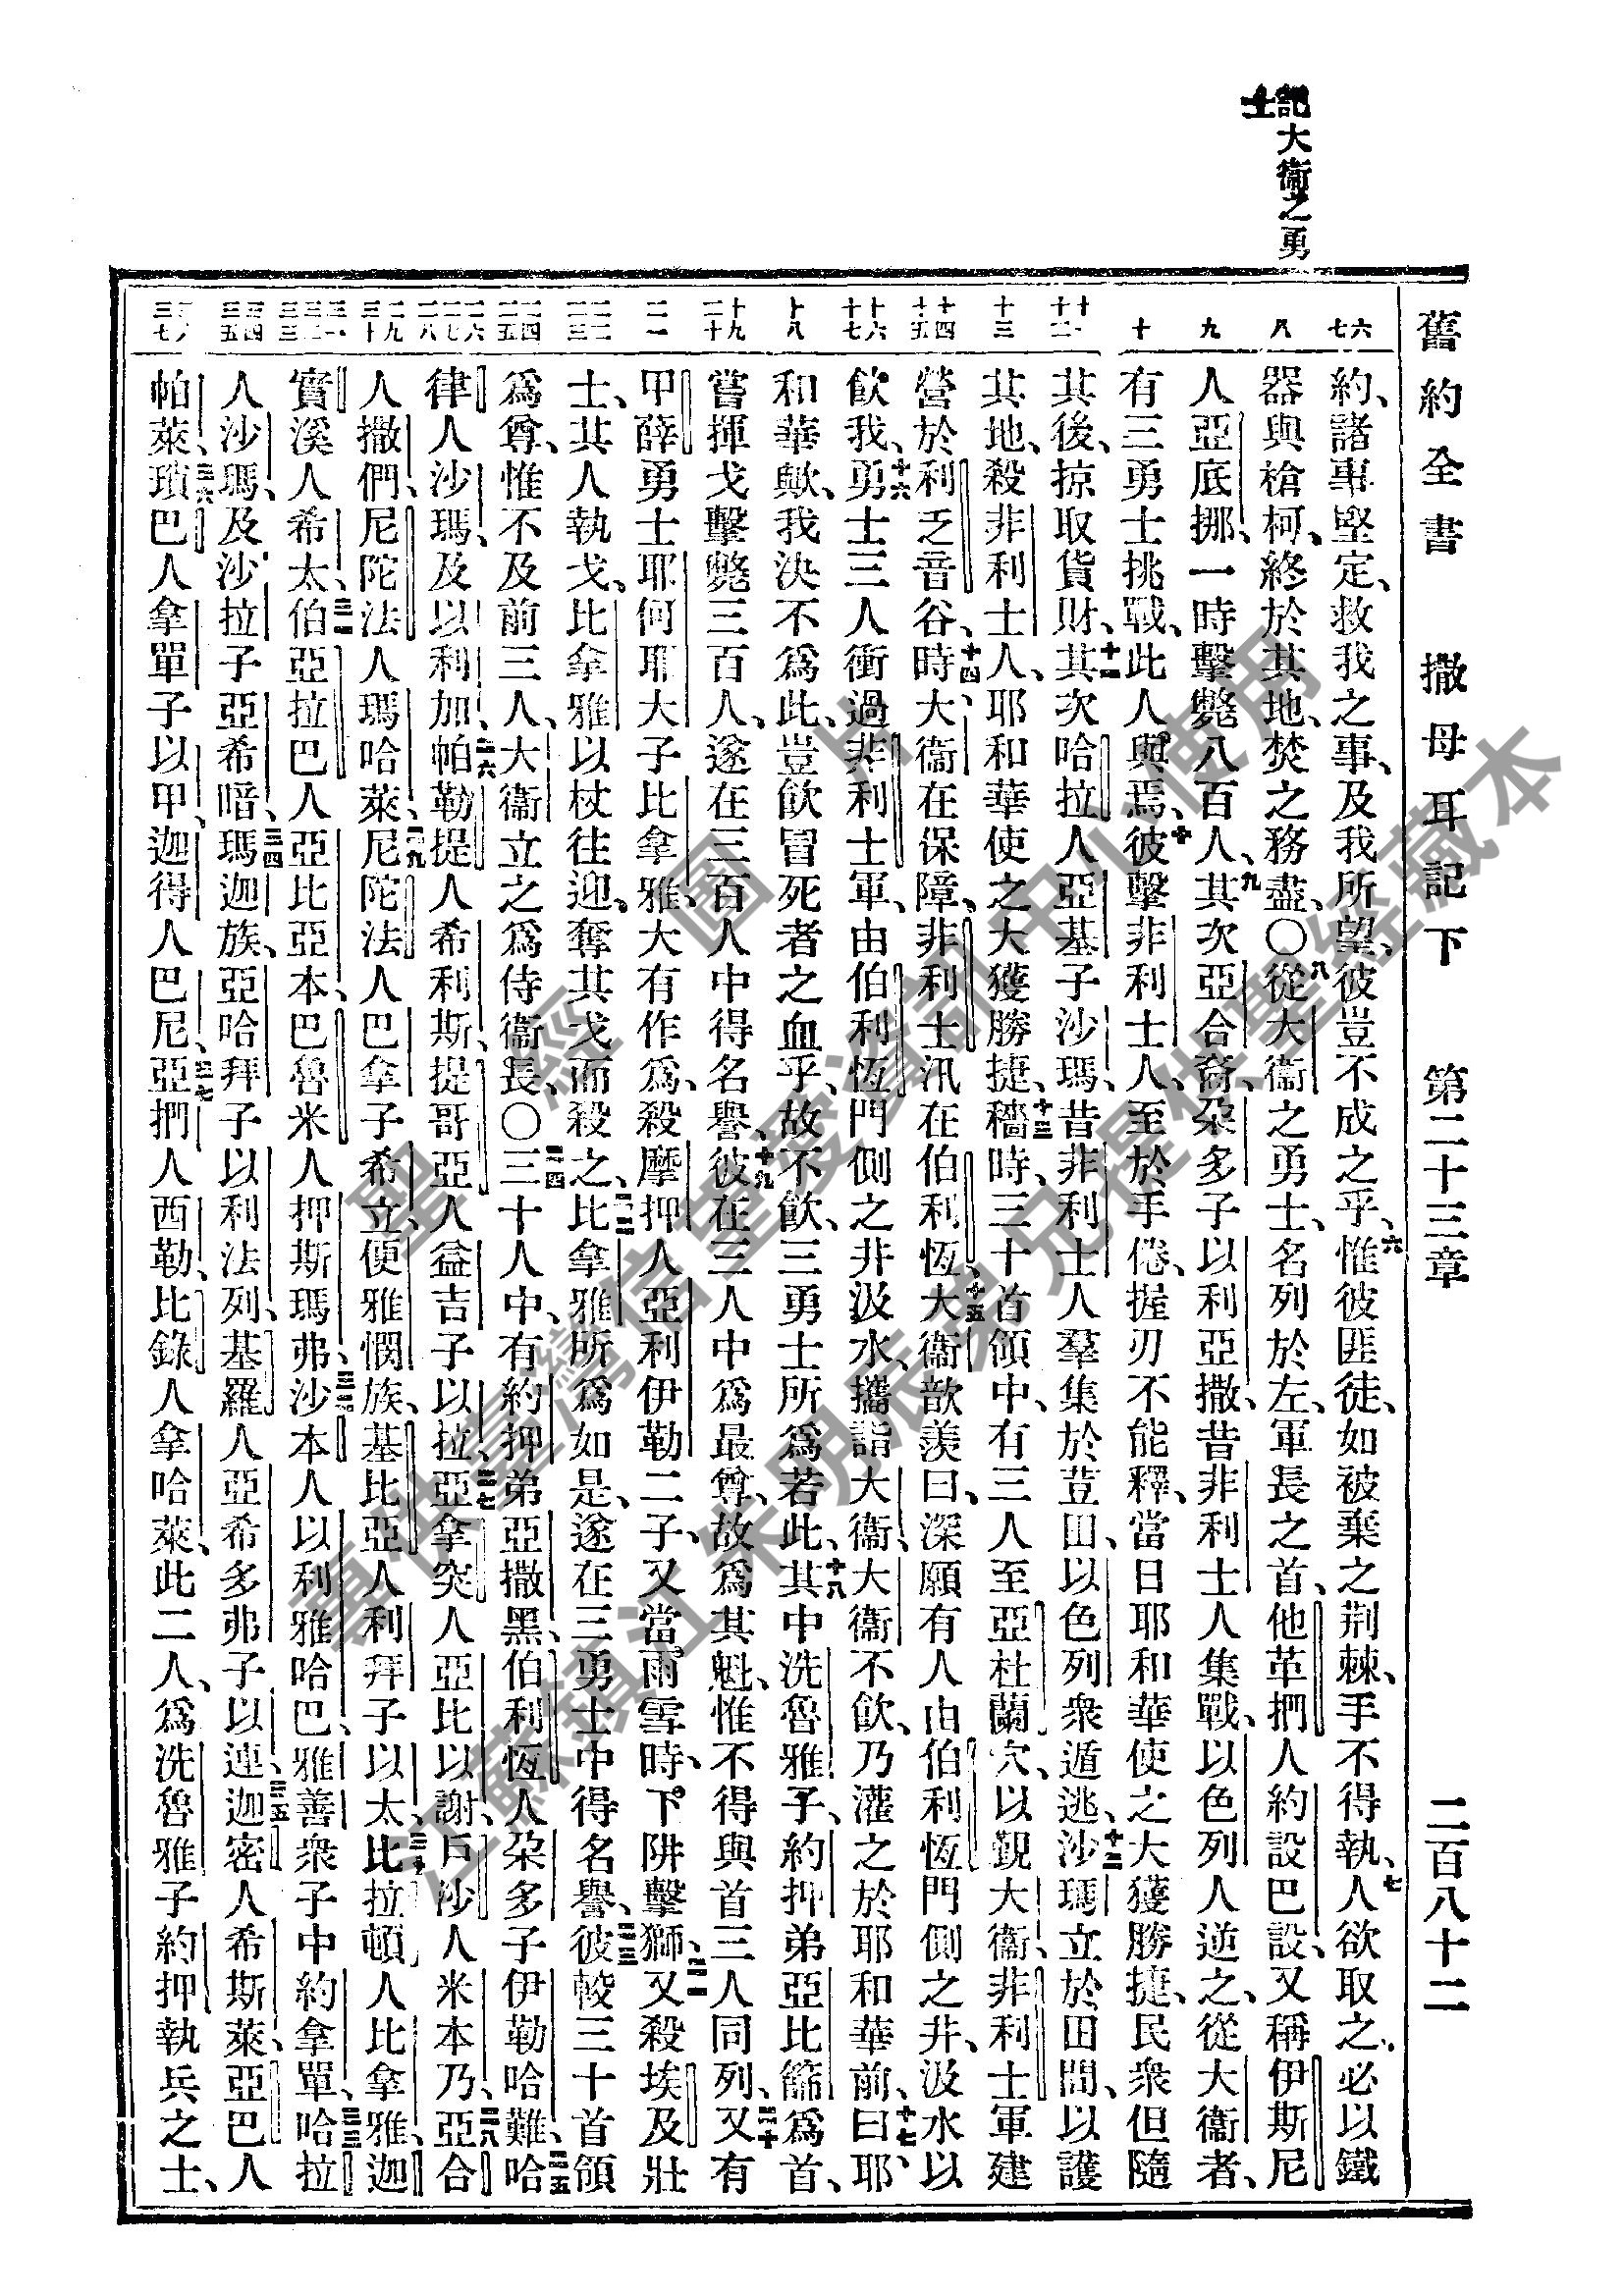 舊約全書　撒母耳記下　第二十三章　二百八十二
記大衞之勇士
約、諸事堅定、救我之事、及我所望、彼豈不成之乎、六惟彼匪徒、如被棄之荆棘、手不得執、七人欲取之、必以鐵
器與槍柯、終於其地、焚之務盡、○八從大衞之勇士、名列於左、軍長之首、他革捫人約設巴設、又稱伊斯尼
人亞底挪、一時擊斃八百人、九其次亞合裔、朶多子以利亞撒、昔非利士人集戰、以色列人逆之、從大衞者、
有三勇士挑戰、此人與焉、十彼擊非利士人、至於手倦、握刃不能釋、當日耶和華使之大獲勝捷、民衆但隨
其後、掠取貨財、十一其次哈拉人亞基子沙瑪、昔非利士人羣集於荳田、以色列衆遁逃、十二沙瑪立於田間、以護
其地、殺非利士人、耶和華使之大獲勝捷、十三穡時、三十首領中、有三人至亞杜蘭穴、以覲大衞、非利士軍建
營於利乏音谷、十四時大衞在保障、非利士汛在伯利恆、十五大衞歆羨曰、深願有人由伯利恆門側之井、汲水以
飲我、十六勇士三人衝過非利士軍、由伯利恆門側之井汲水、攜詣大衞、大衞不飲、乃灌之於耶和華前、十七曰、耶
和華歟、我決不爲此、豈飲冒死者之血乎、故不飲、三勇士所爲若此、十八其中洗魯雅子、約押弟亞比篩爲首、
嘗揮戈擊斃三百人、遂在三百人中得名譽、十九彼在三人中爲最尊、故爲其魁、惟不得與首三人同列、二十又有
甲薛勇士耶何耶大子比拿雅、大有作爲、殺摩押人亞利伊勒二子、又當雨雪時、下阱擊獅、二一又殺埃及壯
士、其人執戈、比拿雅以杖往迎、奪其戈而殺之、二二比拿雅所爲如是、遂在三勇士中得名譽、二三彼較三十首領
爲尊、惟不及前三人、大衞立之爲侍衞長、○二四三十人中、有約押弟亞撒黑、伯利恆人朶多子伊勒哈難、二五哈
律人沙瑪、及以利加、二六帕勒提人希利斯、提哥亞人益吉子以拉、二七亞拿突人亞比以謝、戶沙人米本乃、二八亞合
人撒們、尼陀法人瑪哈萊、二九尼陀法人巴拿子希立、便雅憫族、基比亞人利拜子以太、三十比拉頓人比拿雅、迦
實溪人希太、三一伯亞拉巴人亞比亞本、巴魯米人押斯瑪弗、三二沙本人以利雅哈巴、雅善衆子中約拿單、三三哈拉
人沙瑪、及沙拉子亞希暗、三四瑪迦族、亞哈拜子以利法列、基羅人亞希多弗子以連、三五迦密人希斯萊、亞巴人
帕萊、三六瑣巴人拿單子以甲、迦得人巴尼、三七亞捫人西勒、比錄人拿哈萊、此二人、爲洗魯雅子約押執兵之士、
聖經圖片
臺灣信望愛資訊中心使用
江蘇鎮江朱明辰弟兄提供聖經藏本